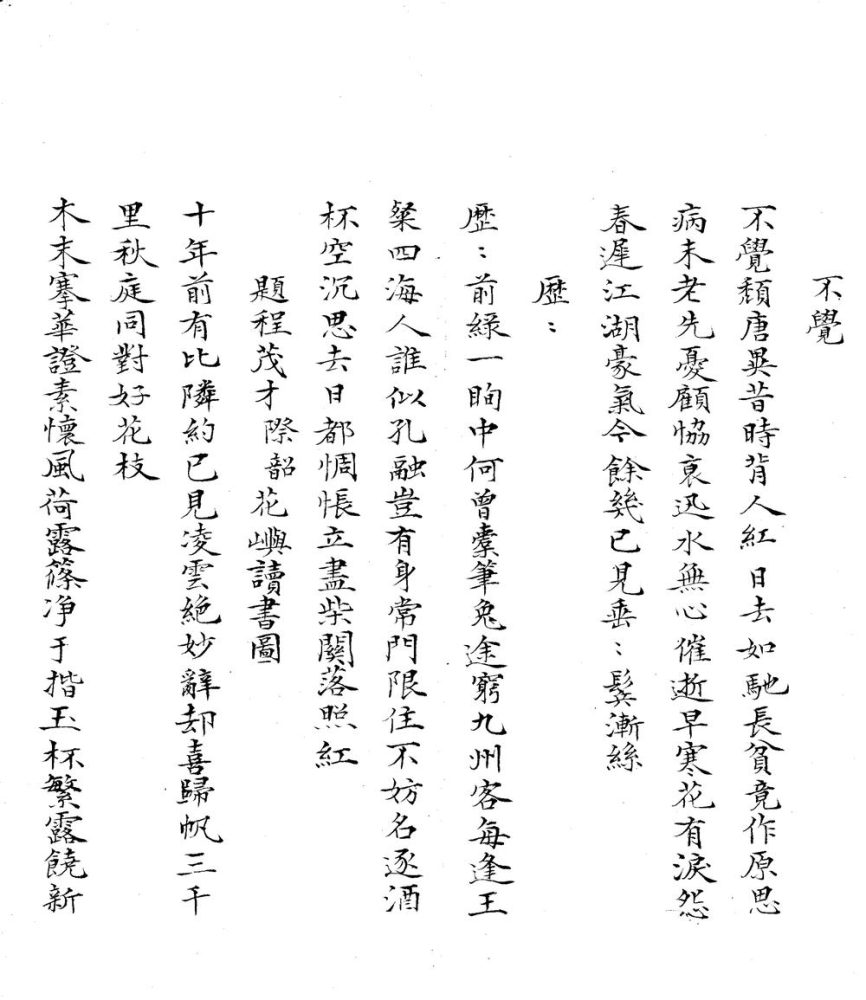 不覺
不覺頹唐異昔時背人紅日去如馳長貧竟作原思
病未老先憂顧恊衰迅水無心催逝早寒花有淚怨
春遲江湖豪氣今餘幾已見垂：鬂漸絲
歴：
歴：前緑一眴中何曾橐筆兔途窮九州客每逢王
粲四海人誰似孔融豈有身常門限住不妨名逐酒
杯空沉思去日都惆悵立盡柴關落照紅
題程茂才際韶花嶼讀書圖
十年前有比隣約已見凌雲絶妙辭却喜歸帆三千
里秋庭同對好花枝
木末搴華證素懷風荷露篠净于揩玉杯繁露饒新